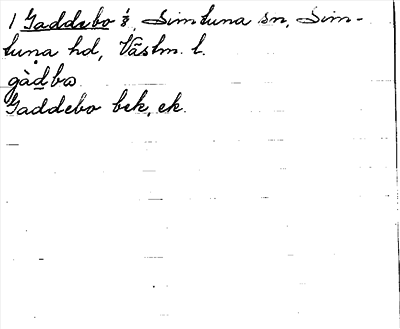 1 Gaddebo ⅓, Simtuna sn, Sim-
tuna hd, Västm. l.
gàdbo
Gaddebo bek, ek.